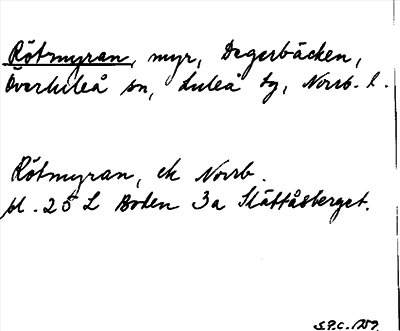 Rötmyran, myr, Degerbäcken,
Överluleå sn, Luleå tg, Norrb. l.
Rötmyran, ek Norrb.
bl. 25 L Boden 3a Slättåsberget.
S.P.C. 1959.